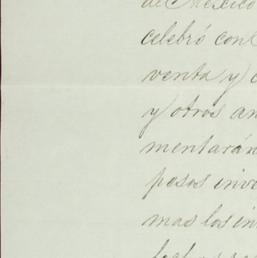 de Mexico
celebró con
venta y
y otros an
mentarán
pesos inv
mas los in